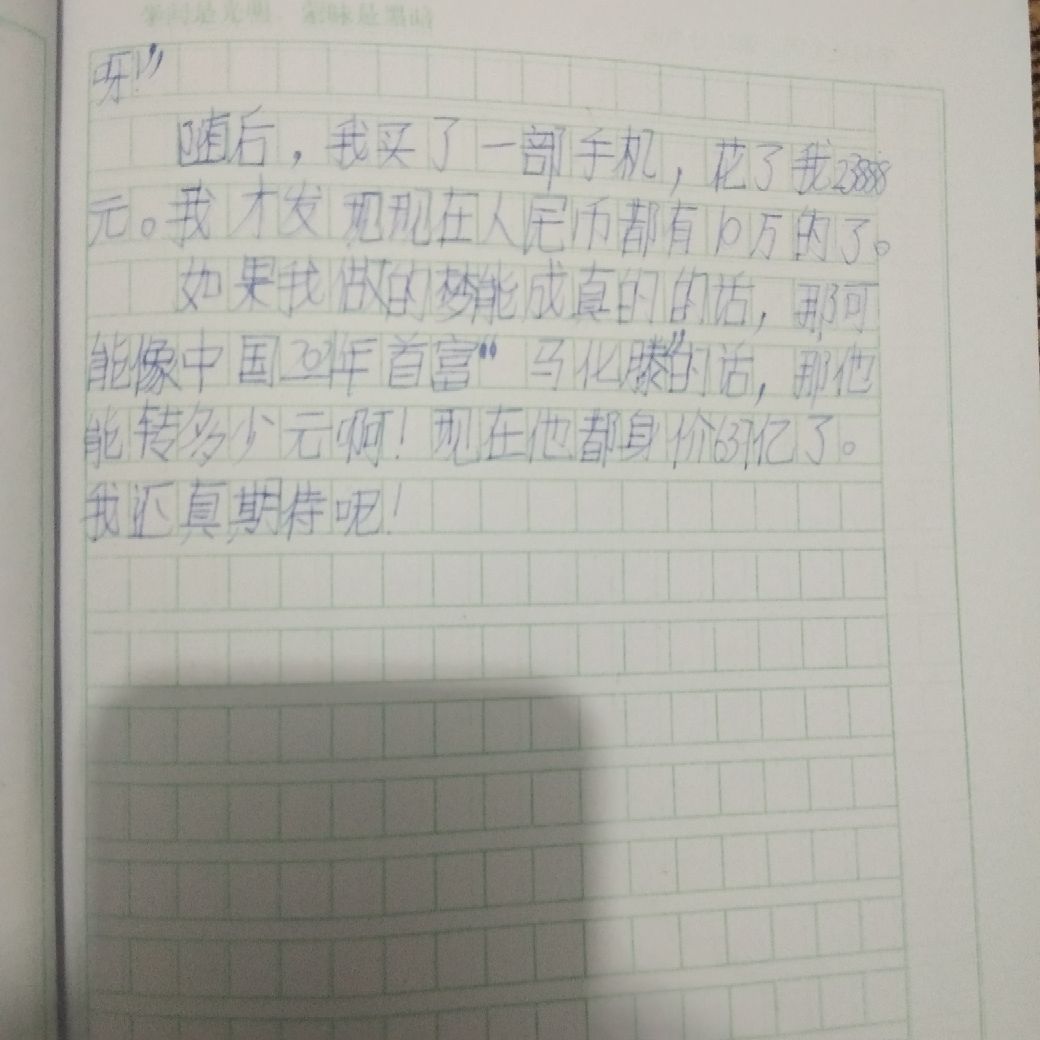 学问是光明，蒙昧是黑暗
呀！”
随后，我买了一部手机，花了我23888
元。我才发现现在人民币都有10万的了。
如果我做的梦能成真的的话，那可
能像中国2021年首富“马化滕”的话，那他
能转多少元啊！现在他都身价637亿了。
我还真期待呢！